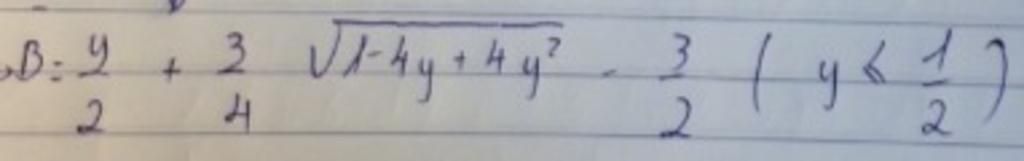 B: y/2 + 3/4 √(1-4y+4y²) - 3/2 ( y ≤ 1/2 )